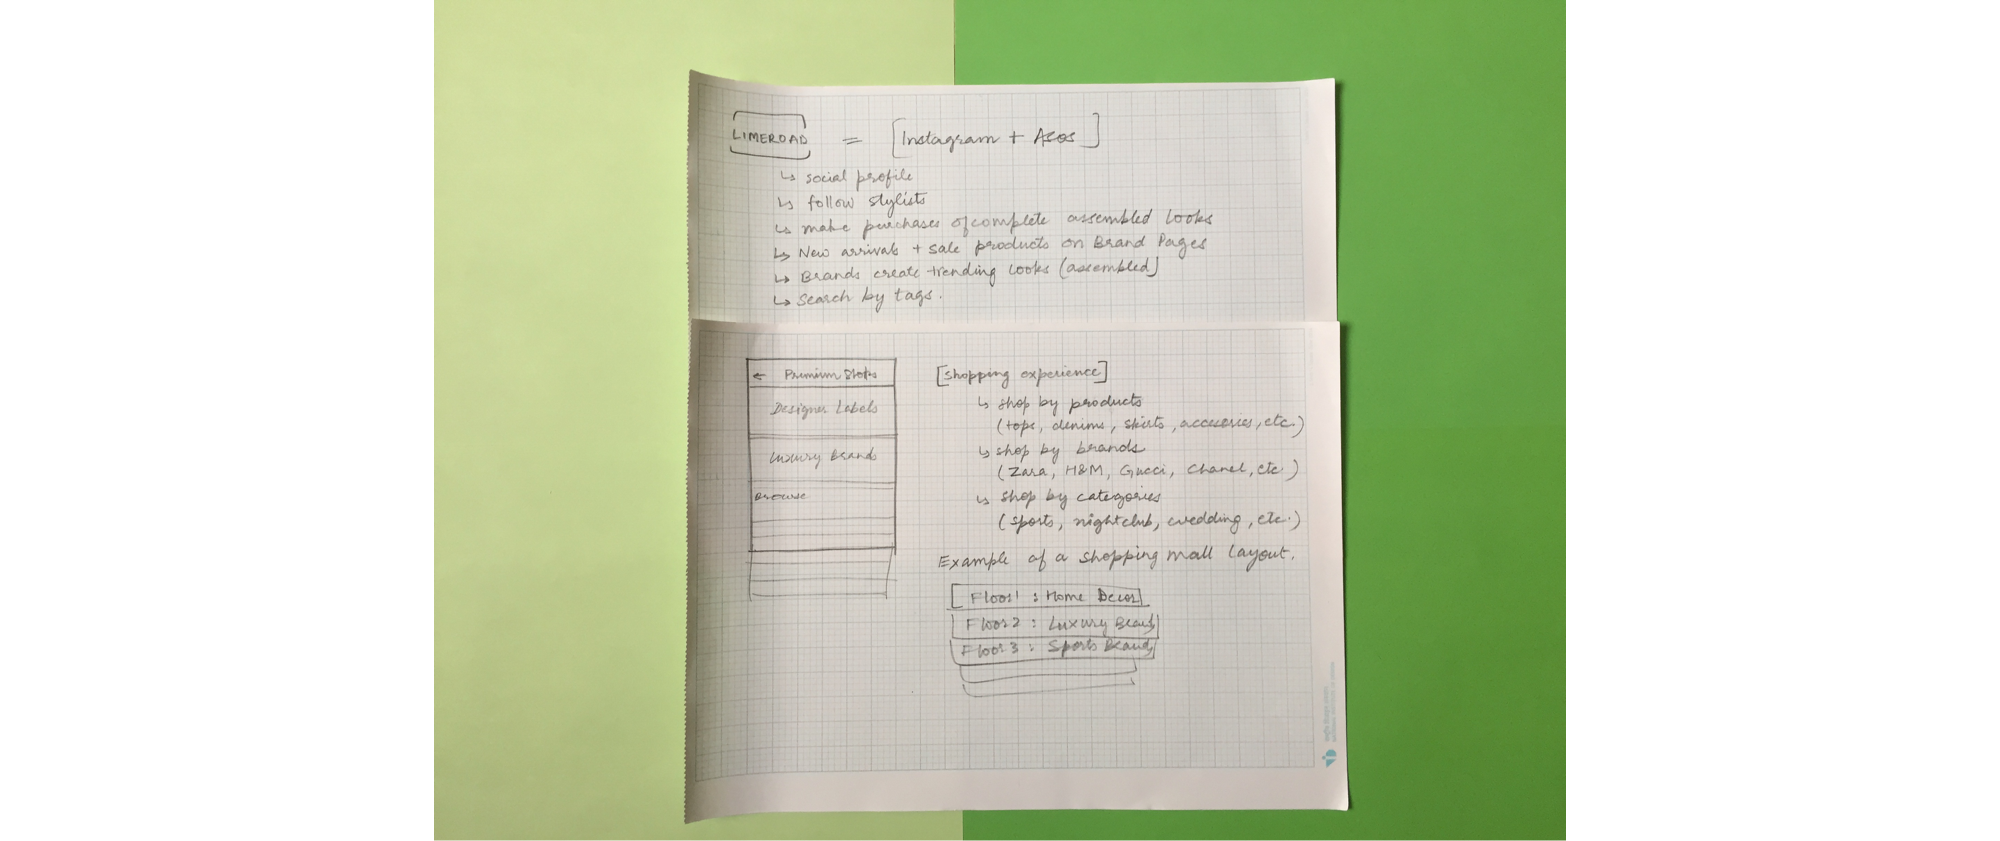 LIMEROAD = [Instagram + Asos]
↳ social profile
↳ follow stylists
↳ make purchases of complete assembled looks
↳ New arrivals + sale products on Brand Pages
↳ Brands create trending looks (assembled)
↳ Search by tags.
← Premium Shops
Designer Labels
Luxury Brands
Browse
[Shopping experience]
↳ shop by products
(tops, denims, skirts, accesories, etc.)
↳ shop by brands
(Zara, H&M, Gucci, Chanel, etc.)
↳ shop by categories
(sports, nightclub, wedding, etc.)
Example of a shopping mall layout.
Floor 1 : Home Decor
Floor 2 : Luxury Brands
Floor 3 : Sports Brands